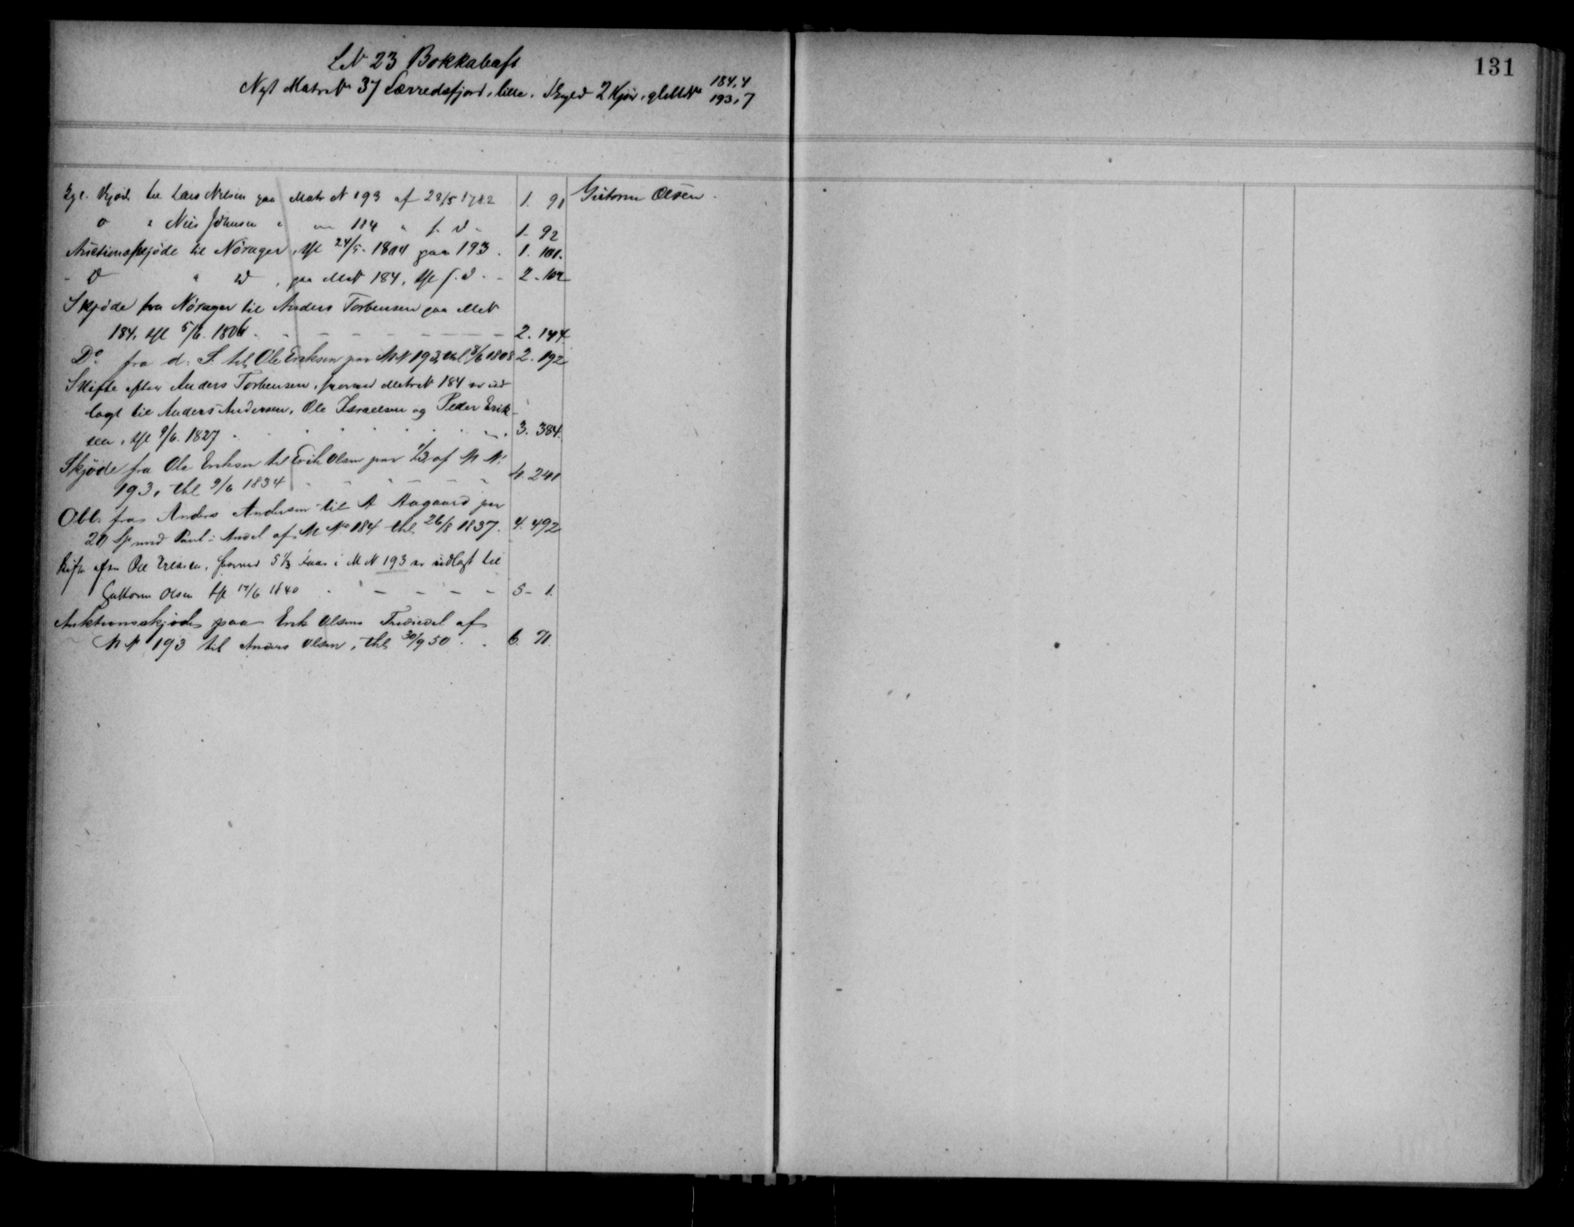 131
LN 23 Bokkabaft
Nyt Matr N 37 Lærredsfjord, lille. Skyld 2 , gl M N 184, 4
193, 7
Kgl. Skjøde til Lars Nilsen paa Matr N 193 af 28/5 1782 1. 91 Guttorm Olsen.
" Niis Johnsen " 184 " f. d. 1. 92
Auctionsskjøde til Nørager, thl 24/5. 1804 paa 193. 1. 101.
- D " D , paa M N 184, thl f. d. - 2. 102
Skjøde fra Nørager til Anders Torbensen paa M N
184, thl 5/6. 1806. - - - - - 2. 144
Do. fra d. S. til Ole Eriksen paa M N 193, thl 8/6 1808 2. 192
Skifte efter Anders Torbensen, hvorved Matr N 184 er ud
lagt til Anders Andersen, Ole Israelsen og Peder Erik-
sen, thl 9/6. 1827 3. 384.
Skjøde fra Ole Eriksen til Erik Olsen paa 1/3 af M N
193, thl 9/6 1834 - - - - 4. 241
Obl. fra Anders Andersen til A Aagaard paa
20 Sp med Pant i Andel af M No 184 thl. 26/8 1837. 4. 492
Skifte efter Ole Eriksen, hvorved 5 1/3 i M N 193 er udlagt til
Guttorm Olsen thl 17/6 1840 - - - - 5 - 1.
Auktionsskjøde paa Erik Olsens Trediedel af
M N 193 til Anders Olsen, thl. 30/9 50. 6. 71.